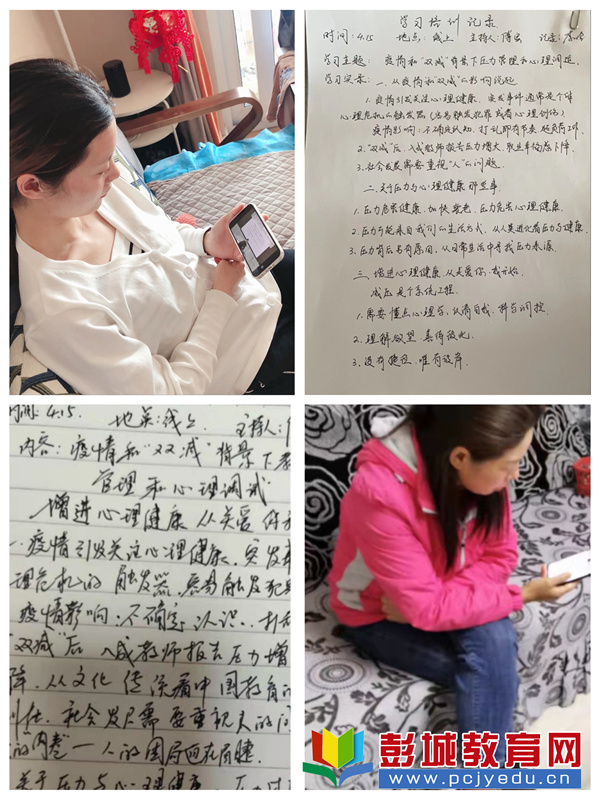 学习培训记录
时间:4.15 地点:线上 主持人:傅 记录:
学习主题: 疫情和“双减”背景下压力管理和心理调适。
学习实录: 一、从疫情和“双减”的影响说起
1. 疫情引发关注心理健康, 突发事件通常是个体
心理危机的触发器(容易触发犯罪或有心理创伤)
疫情影响:不确定认知、打乱
2. “双减”后, 入成教师报告压力增大, 职业幸福感下降、
3. 社会发展需要重视“人”的问题。
二、关于压力与心理健康那些事、
1. 压力危害健康、加快衰老, 压力危害心理健康、
2. 压力可能来自我们的生活方式, 从人类进化看压力与健康、
3. 压力背后必有原因, 从日常生活中寻找压力来源、
三、增进心理健康, 从关爱你·我开始、
减压是个系统工程、
1. 需要懂点心理学, 认清自我、科学调控
2. 理解欲望、善待彼此、
3. 没有捷径、唯有彼岸、
时间:4.15. 地点:线上 主持人:
内容:疫情和“双减”背景下
管理和心理调试
增进心理健康 从关爱你
一、疫情引发关注心理健康、突发
理危机的触发器,容易触发犯
疫情影响:不确定认识、打
“双减”后 入成教师报告压力增
降、从文化传流看中国教育
社会发展需要重视人的问
的“内卷”一人的困局
关于压力与心理健康、压力
彭城教育网
www.pcjyedu.cn